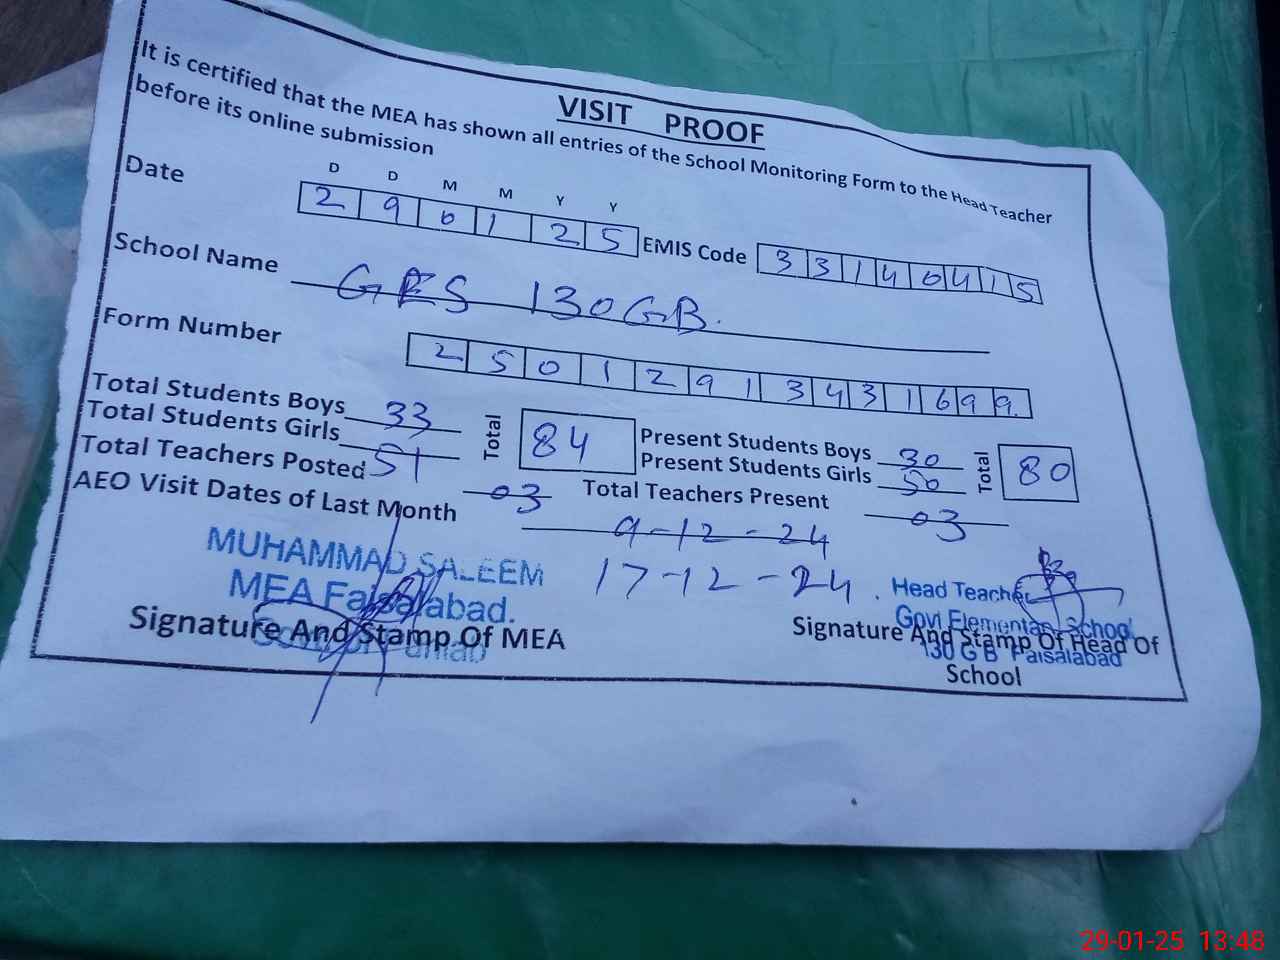 VISIT PROOF
It is certified that the MEA has shown all entries of the School Monitoring Form to the Head Teacher
before its online submission
D D M M Y Y
Date 2 9 0 1 2 5 EMIS Code 3 3 1 4 0 4 1 5
School Name GES 130 GB.
Form Number 2 5 0 1 2 9 1 3 4 3 1 6 9 9
Total Students Boys 33 Total 84 Present Students Boys 30 Total 80
Total Students Girls 51 Present Students Girls 50
Total Teachers Posted 03 Total Teachers Present 03
AEO Visit Dates of Last Month 9-12-24
17-12-24.
MUHAMMAD SALEEM
MEA Faisalabad.
Signature And Stamp Of MEA
Head Teacher
Govt Elementary School
130 G B Faisalabad
Signature And Stamp Of Head Of
School
29-01-25 13:48